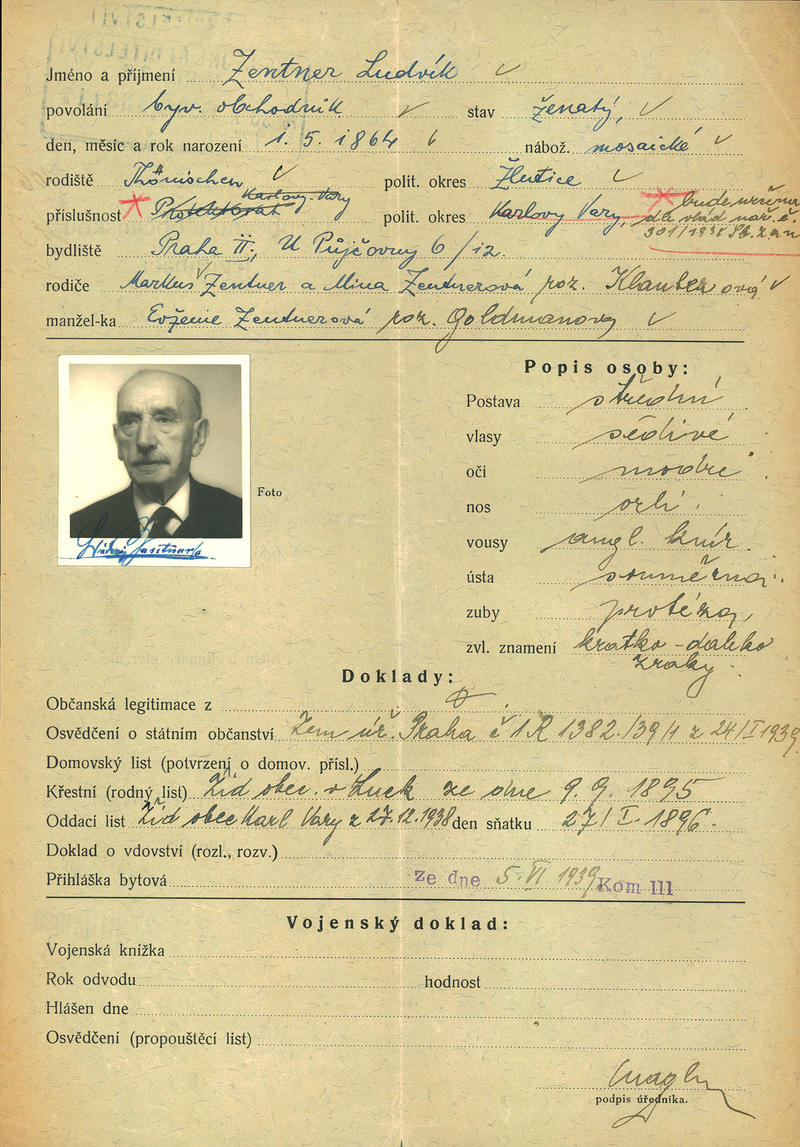 Jméno a příjmení Zentner Ludvík
povolání býv. obchodník stav ženatý,
den, měsíc a rok narození 1. 5. 1864 nábož. mosaické
rodiště Thönischen polit. okres Žlutice
Karlovy Vary
příslušnost Protektorat polit. okres Karlovy Vary, bude určena
dle vlád nař. č.
301/1938 Sb. z. a n
bydliště Praha II., U Půjčovny 6/12.
rodiče Markus Zentner a Mina Zentnerová roz.
manžel-ka Evženie Zentnerová roz. Goldmanova
Popis osoby:
Postava střední
vlasy šedivé
oči modré
Foto
nos orlí
vousy angl. knír.
ústa souměrná
zuby protéza,
zvl. znamení krátko-daleko
zraky.
Doklady:
Občanská legitimace z
Osvědčení o státním občanství Zem. úř. Praha č 1R 1382./39/1 z 24/I 1939
Domovský list (potvrzení o domov. přísl.)
Křestní (rodný list) Žid obec. v Luck ze dne 9. 9. 1895
Oddací list Žid obec Karl Vary z 27.12.1938 den sňatku 27/I. 1896.
Doklad o vdovství (rozl., rozv.)
Přihláška bytová ze dne 5. VI 1939 Kom III
Vojenský doklad:
Vojenská knížka
Rok odvodu hodnost
Hlášen dne
Osvědčení (propouštěcí list)
podpis úředníka.